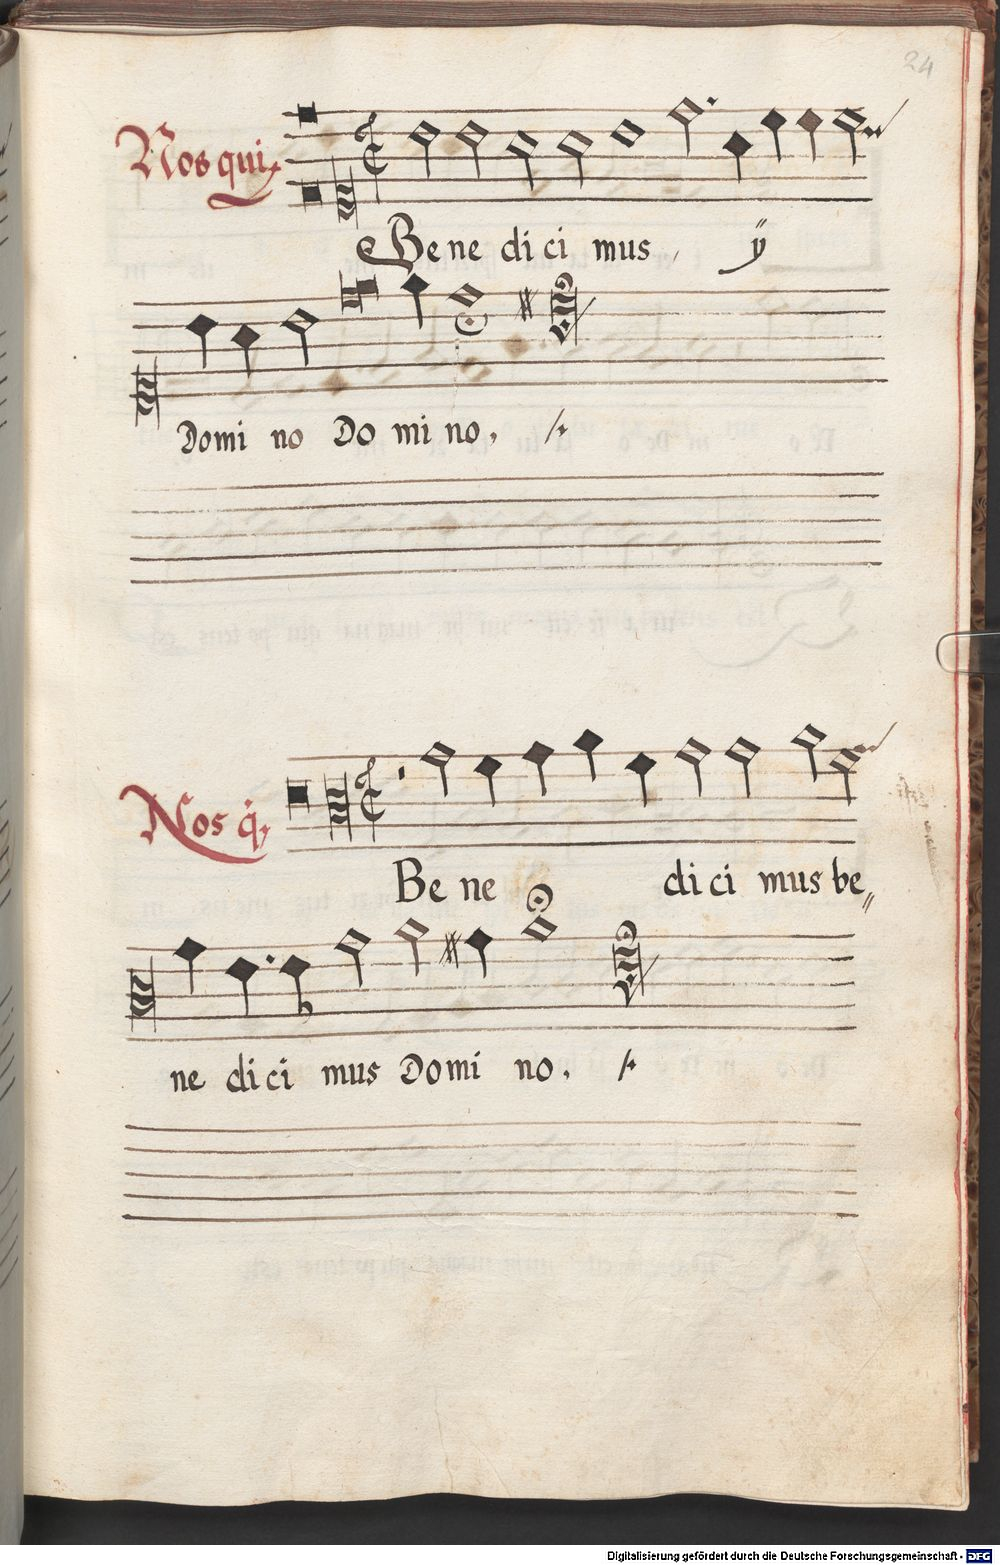 24
Nos qui
Benedicimus, ÿ
Domi no Do mi no,
Nos q̇,
Be ne di ci mus be„
ne di ci mus Domi no.
Digitalisierung gefördert durch die Deutsche Forschungsgemeinschaft - DFG